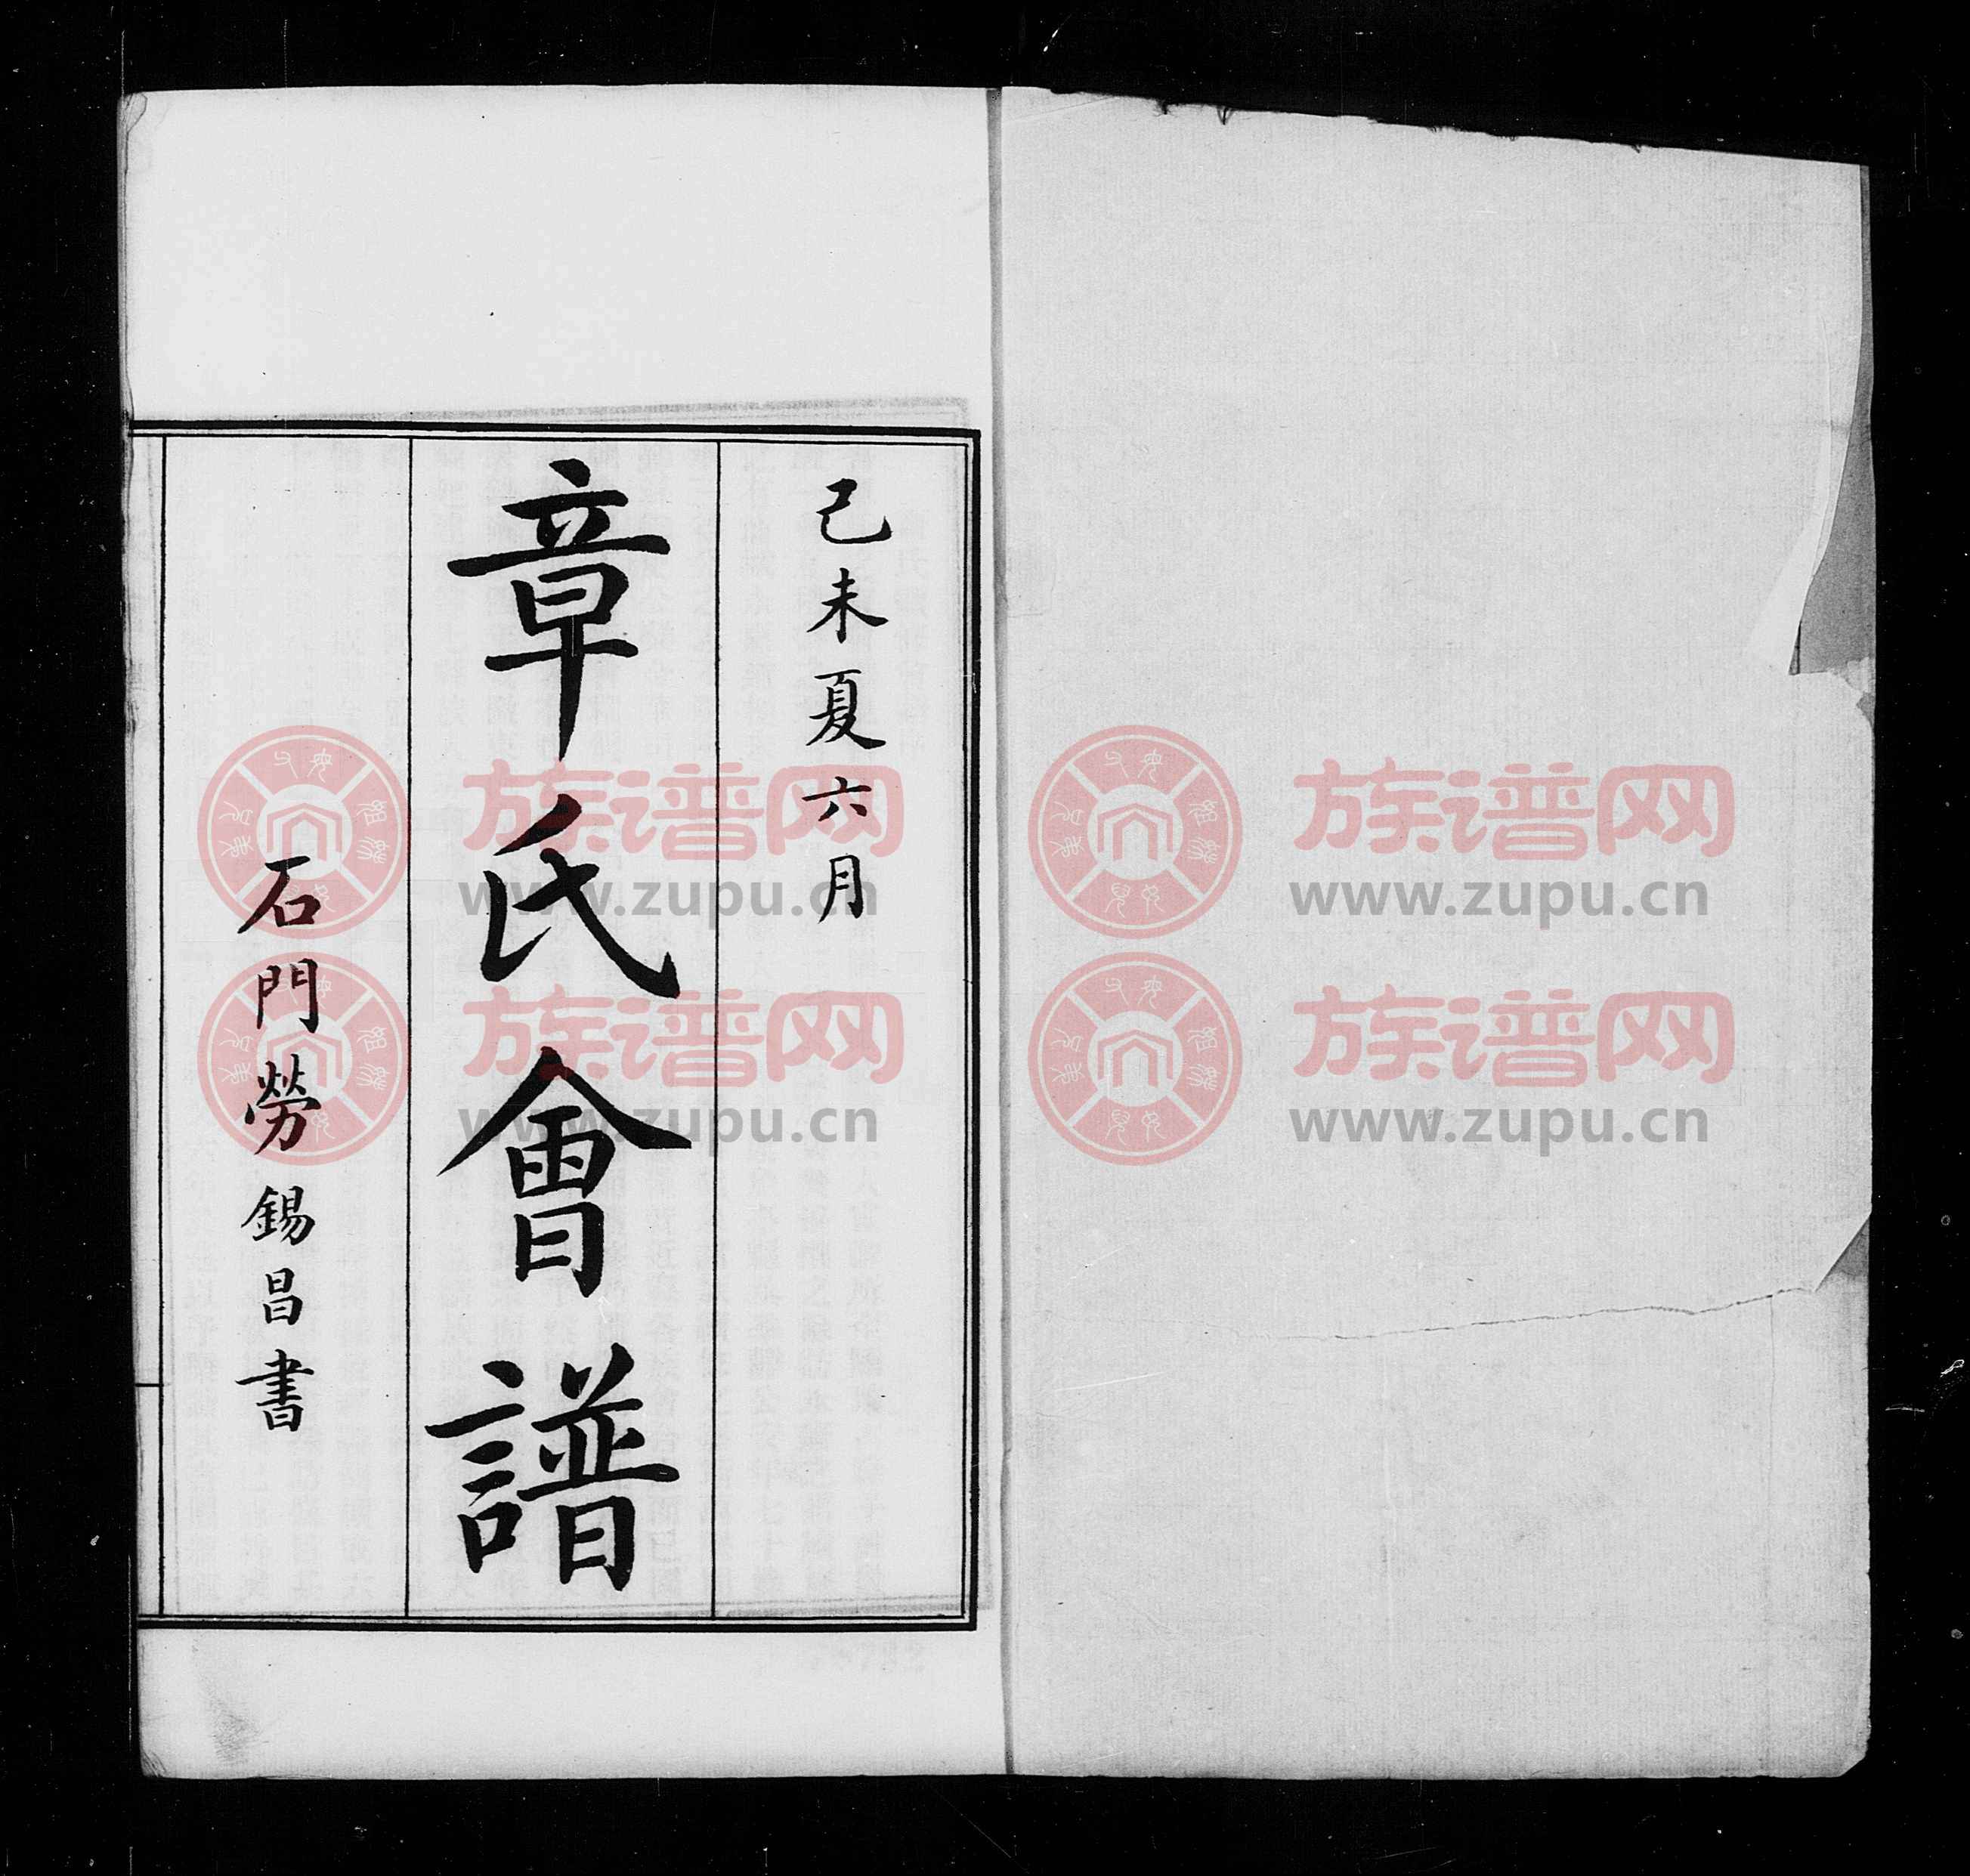 己未夏六月
章氏會譜
石門勞錫昌書
族谱网
www.zupu.cn
族谱网
www.zupu.cn
族谱网
www.zupu.cn
族谱网
www.zupu.cn